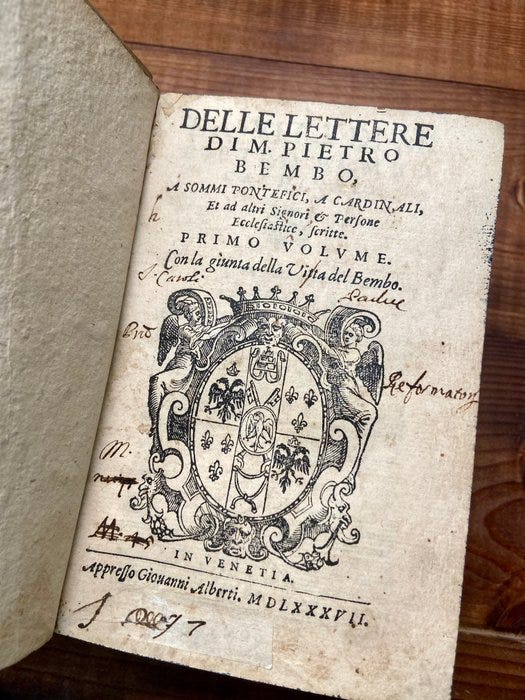 DELLE LETTERE
DI M. PIETRO
BEMBO,
A SOMMI PONTEFICI, A CARDINALI,
Et ad altri Signori & Persone
Ecclesiastice, scritte.
PRIMO VOLVME.
Con la giunta della Vita del Bembo.
S. Caroli
Reformatory
M.
IN VENETIA.
Appresso Giouanni Alberti. MDLXXXVII.